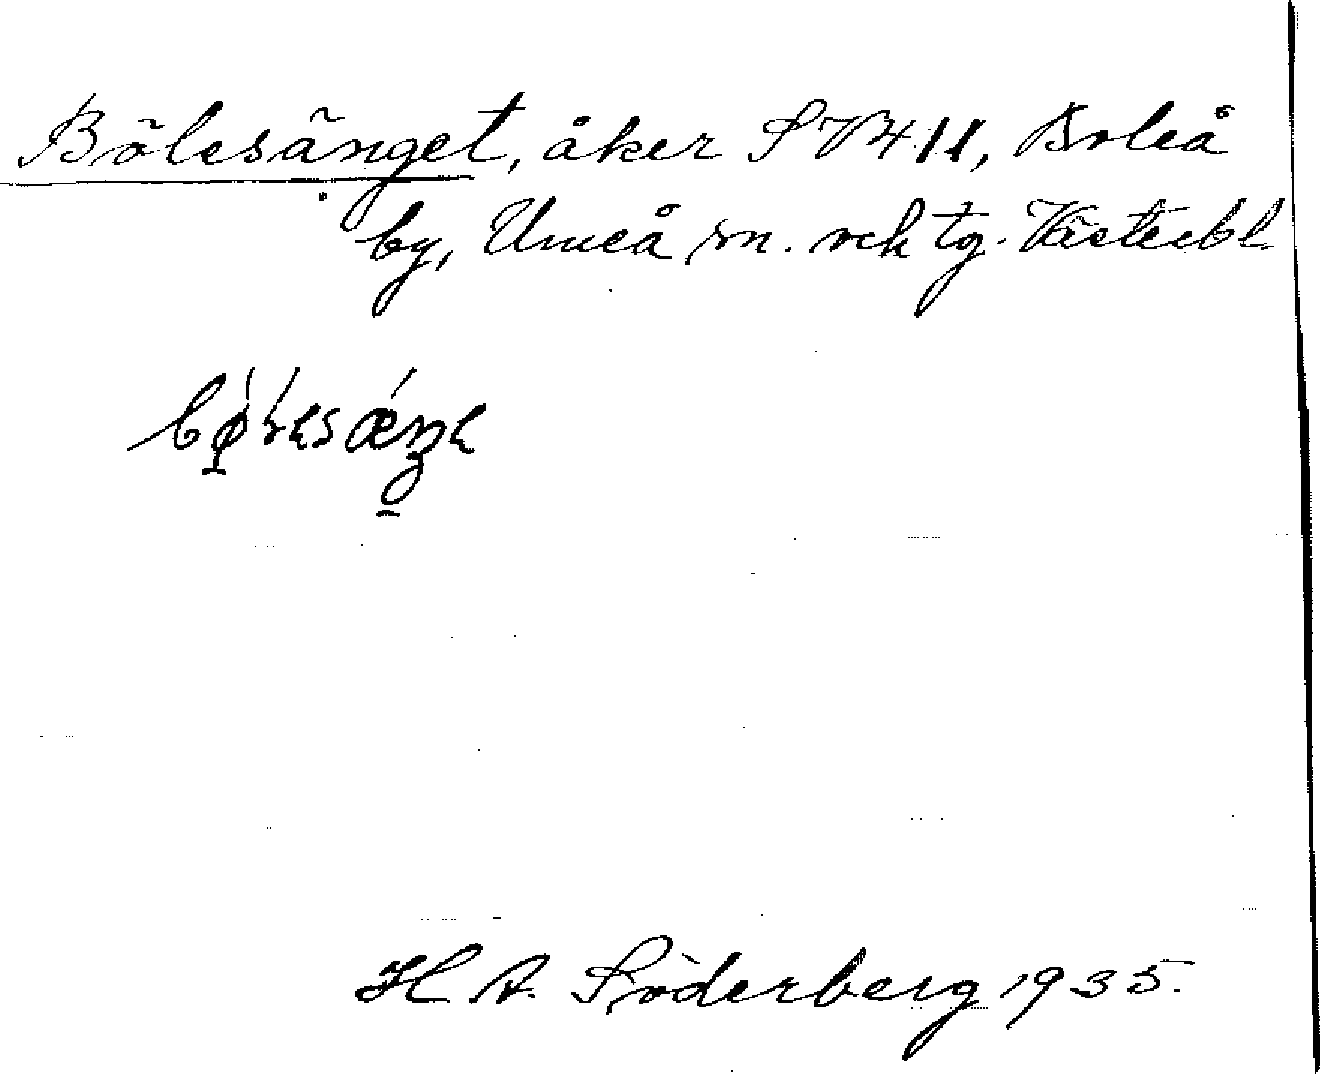 Bölesänget, åker S 74 11, Böleå
by, Umeå sn. och tg. Västerbl.
H A. Söderberg 1935.